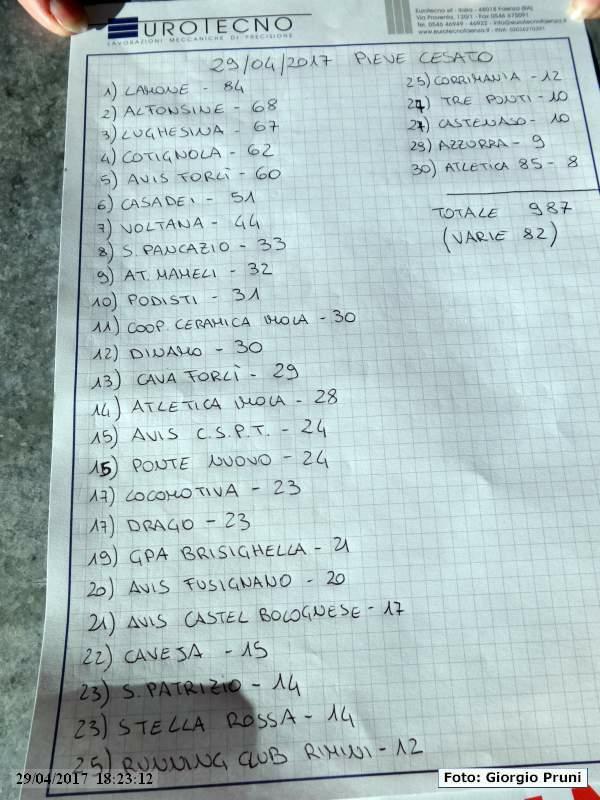 EUROTECNO
LAVORAZIONI MECCANICHE DI PRECISIONE
Eurotecno srl - Italia - 48018 Faenza (RA)
Via Proventa, 120/1 - Fax 0546 675091
Tel. 0546 46949 - 46922 - info@eurotecnofaenza.it
www.eurotecnofaenza.it
29/04/2017 PIEVE CESATO
1) LAMONE - 84
2) ALFONSINE - 68
3) LUGHESINA - 67
4) COTIGNOLA - 62
5) AVIS FORLÌ - 60
6) CASADEI - 51
7) VOLTANA - 44
8) S. PANCAZIO - 33
9) AT. MAMELI - 32
10) PODISTI - 31
11) COOP. CERAMICA IMOLA - 30
12) DINAMO - 30
13) CAVA FORLÌ - 29
14) ATLETICA IMOLA - 28
15) AVIS C.S.P.T. - 24
15) PONTE NUOVO - 24
17) LOCOMOTIVA - 23
17) DRAGO - 23
19) GPA BRISIGHELLA - 21
20) AVIS FUSIGNANO - 20
21) AVIS CASTEL BOLOGNESE - 17
22) CAVEJA - 15
23) S. PATRIZIO - 14
23) STELLA ROSSA - 14
25) RUNNING CLUB RIMINI - 12
25) CORRIMANIA - 12
27) TRE PONTI - 10
27) CASTENASO - 10
29) AZZURRA - 9
30) ATLETICA 85 - 8
TOTALE 987
(VARIE 82)
29/04/2017 18:23:12
Foto: Giorgio Pruni